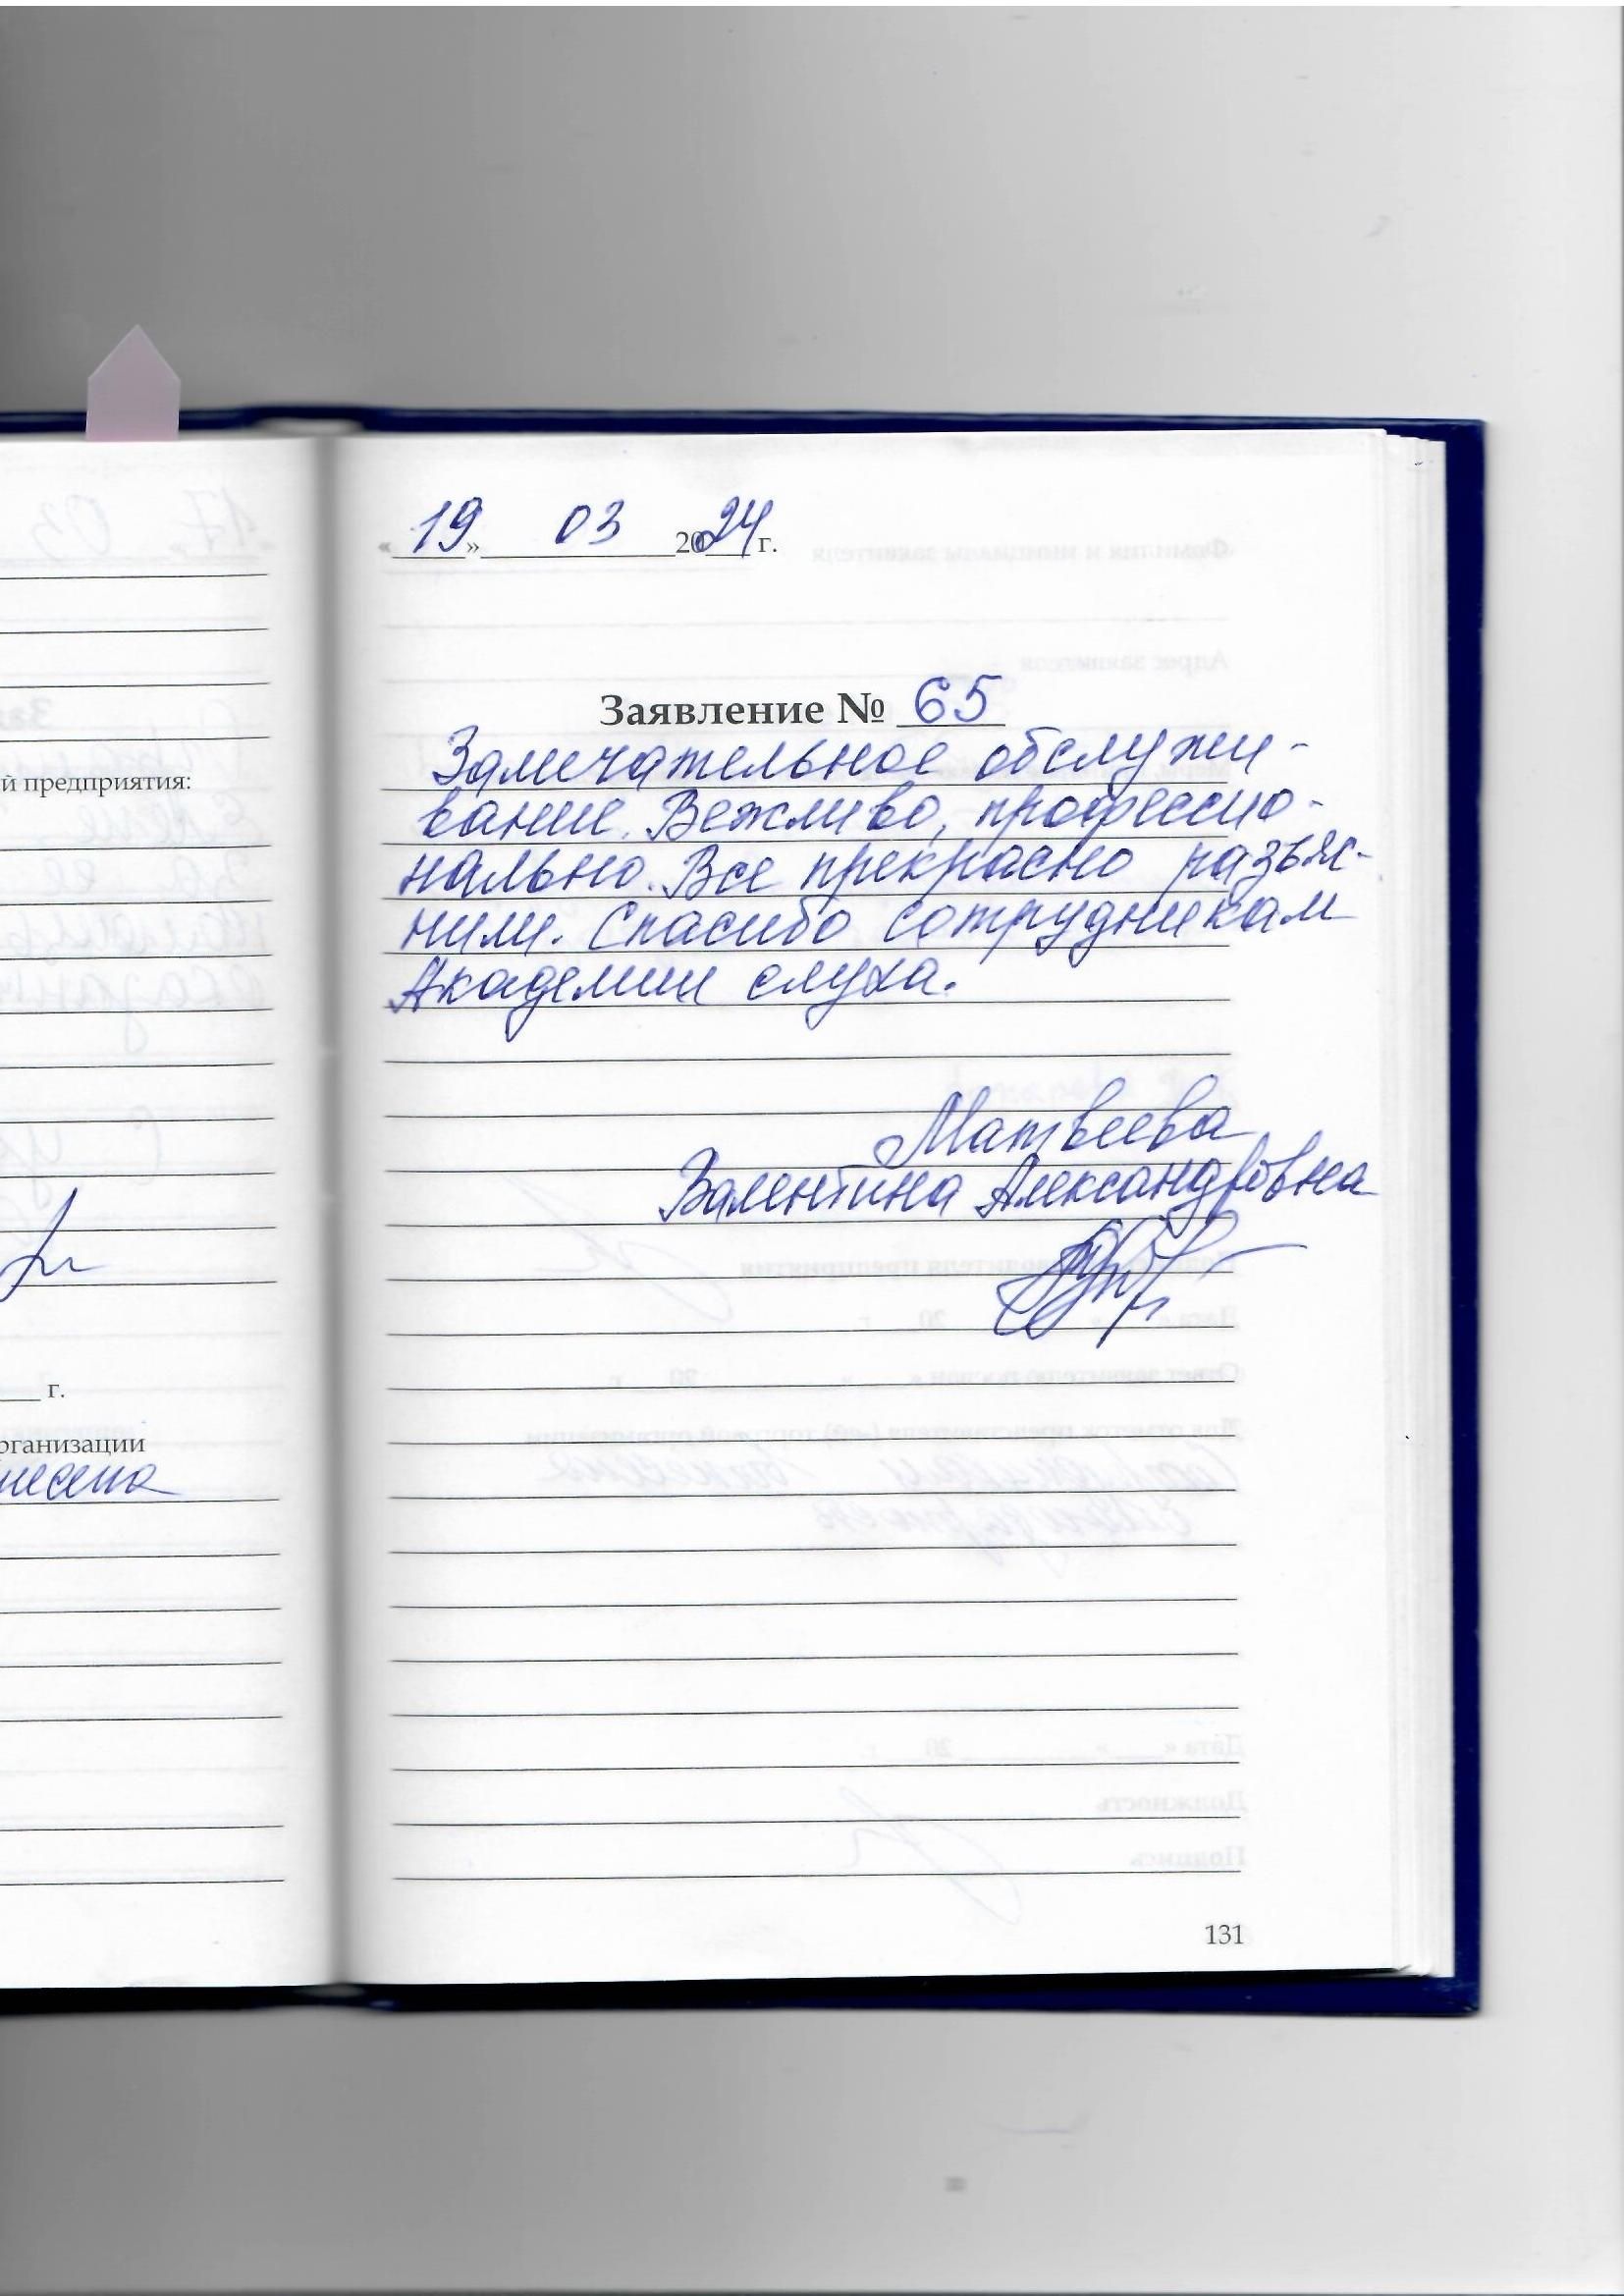 «19» 03 2024 г.
Заявление № 65
Замечательное обслужи-
вание. Вежливо, профессио-
нально. Все прекрасно разъяс-
нили. Спасибо сотрудникам
Академии слуха.
Матвеева
Валентина Александровна
131
й предприятия:
г.
рганизации
несена